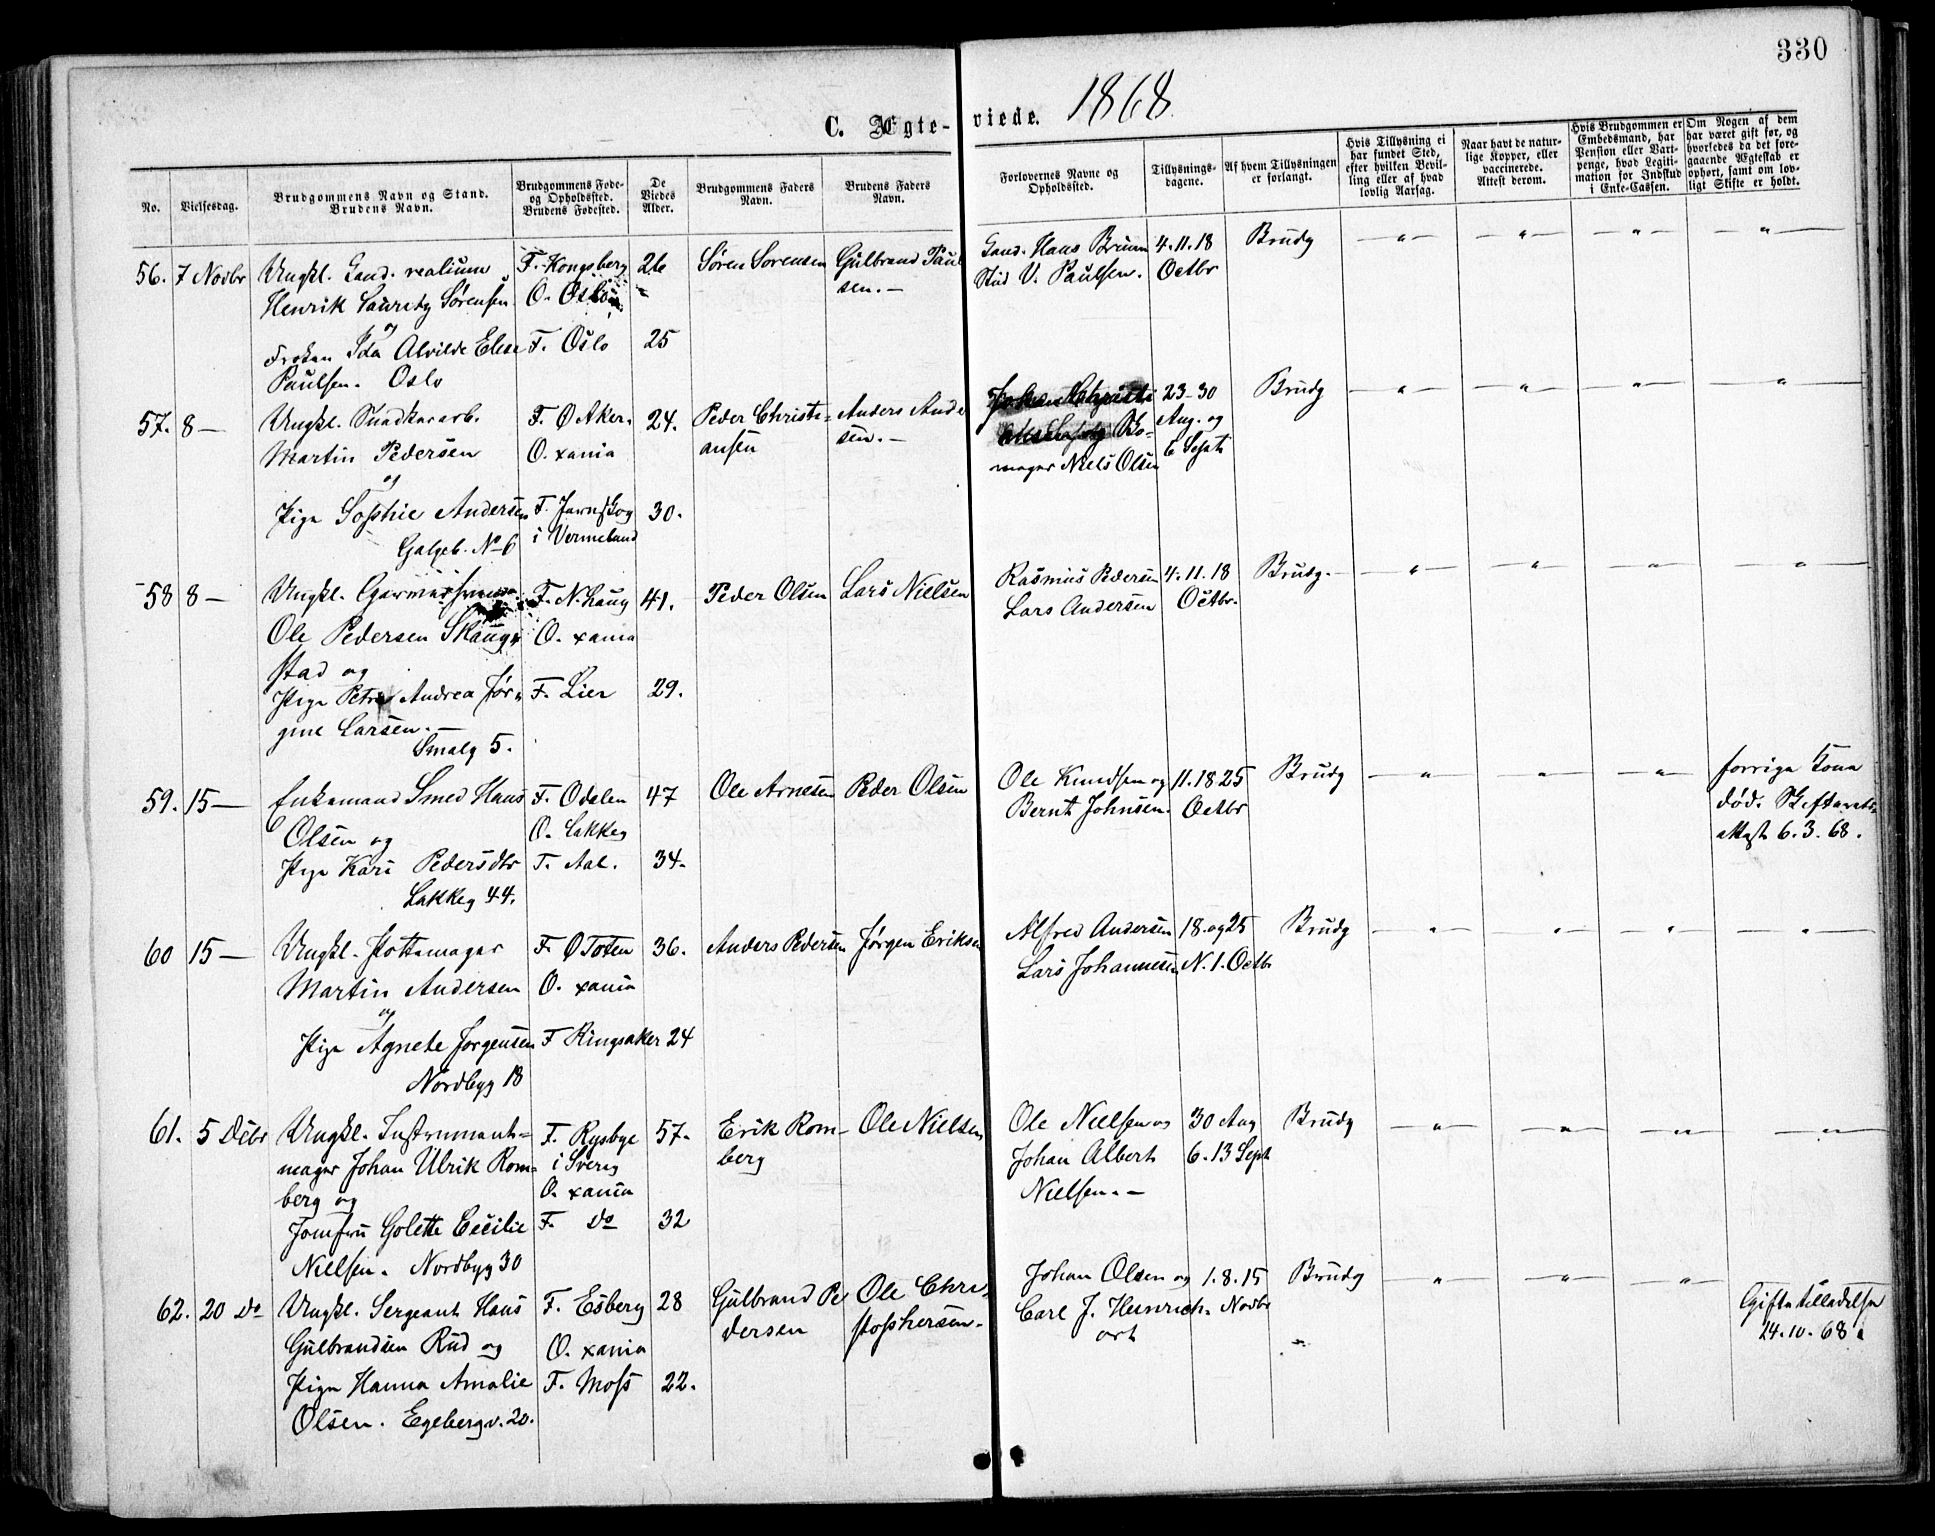 330
C. Ægte-viede. 1868.
No.
Vielsesdag.
Brudgommens Navn og Stand.
Brudens Navn.
Brudgommens Føde-
og Opholdssted.
Brudens Fødested.
De
Viedes
Alder.
Brudgommens Faders
Navn.
Brudens Faders
Navn.
Forlovernes Navne og
Opholdssted.
Tillysnings-
dagene.
Af hvem Tillysningen
er forlangt.
Hvis Tillysning ei
har fundet Sted,
efter hvilken Bevil-
ling eller af hvad
lovlig Aarsag.
Naar havt de natur-
lige Kopper, eller
vaccinerede.
Attest derom.
Hvis Brudgommen er
Embedsmand, har
Pension eller Vart-
penge, hvad Legiti-
mation for Indskud
i Enke-Cassen.
Om Nogen af dem
har været gift før, og
hvorledes da det fore-
gaaende Ægteskab er
ophørt, samt om lov-
ligt Skifte er holdt.
56. 7 Novbr Ungkl. Cand. realium F. Kongsberg 26 Søren Sørensen Gulbrand Paul Cand. Hans Bruun 4. 11. 18 Brudg — " — — " — — " — — " —
Henrik Lauritz Sørensen O. Oslo sen. — Stud V. Paulsen. Octbr
og
Frøken Ida Alvilde Elise F. Oslo 25
Paulsen. Oslo
57. 8 — Ungkl. Snedkerarb. F. Ø Aker. 24. Peder Christi- Anders Ande 23-30 Brudg — " — — " — — " — — " —
Martin Pedersen O. xania ansen sen. — Aug. og
mager Niels Olsen 6 Septb
og
Pige Sophie Andersen F. Jernskog 30.
Galgeb. No 6 i Vermeland
58 8 — Ungkl. F. N. Haug 41. Peder Olsen Lars Nielsen Rasmus Pedersen 4. 11. 18 Brudg. — " — — " — — " — — " —
Ole Pedersen Skaug- O. xania Lars Andersen Octbr.
stad og
Pige Petra Andrea Jør- F. Lier 29.
gine Larsen. —
Smalg 5.
59. 15 — Enkemand Smed Hans F. Odalen 47 Ole Arnesen Peder Olsen Ole Knudsen og 11. 18 25 Brudg — " — — " — — " — forrige Kone
Olsen og O. Lakkeg Bernt Johnsen. Octbr død. Skifterets-
Pige Kari Pedersdtr F. Aal. 34. attest 6. 3. 68.
Lakkeg 44.
60 15 — Ungkl. Pottemager F. Ø Toten 36. Anders Pedersen Jørgen Eriksen Alfred Andersen 18. og 25 Brudg — " — — " — — " — — " —
Martin Andersen O. xania Lars Johannesen N. 1. Octbr
og
Pige Agnete Jørgensen F Ringsaker 24
Nordbyg 18
61. 5 Decbr Ungkl. Instrument- F. Rysbye 57. Erik Rom- Ole Nielsen Ole Nielsen og 30 Aug Brudg — " — — " — — " — — " —
mager Johan Ulrik Rom- i Sverig berg Johan Albert 6. 13 Sept
berg og O. xania Nielsen. —
Jomfru Golette Cecilie F. do 32
Nielsen. Nordbyg 30
62. 20 do Ungkl. Sergeant Hans F. Esberg 28 Gulbrand Pe Ole Chri- Johan Olsen og 1. 8. 15 Brudg — " — — " — — " — Giftetilladelse
Gulbrandsen Rud og O. xania dersen stophersen. Carl J. Heinrich- Novbr 24. 10. 68
Pige Hanna Amalie F. Moss 22.
Olsen. Egebergv. 20.